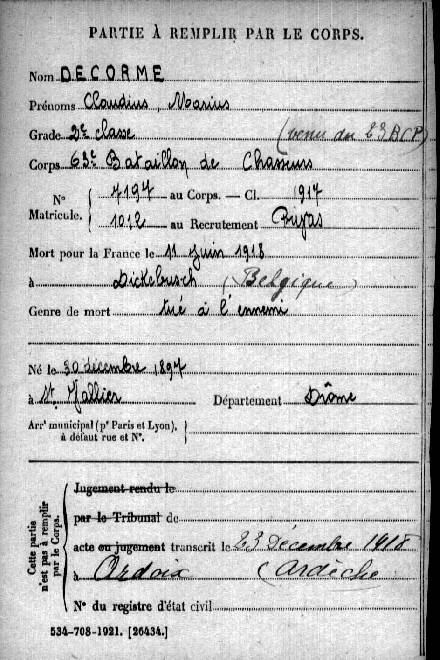 PARTIE À REMPLIR PAR LE CORPS.
Nom DECORME
Prénoms Claudius, Marius
Grade 2e classe (venu du 23 BCP)
Corps 63e Bataillon de Chasseurs
No Matricule. 7197 au Corps. — Cl. 1917
1012 au Recrutement Privas
Mort pour la France le 11 juin 1918
à Dickebusch (Belgique)
Genre de mort tué à l'ennemi
Né le 30 décembre 1897
à St Vallier Département Drôme
Arrt municipal (pr Paris et Lyon),
à défaut rue et No.
Cette partie n'est pas à remplir par le Corps.
Jugement rendu le
par le Tribunal de
acte ou jugement transcrit le 23 Décembre 1918
à Ardoix (Ardèche
No du registre d'état civil
534-708-1921. [26434.]